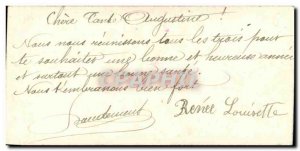 Chère Tante Augustine !
Nous nous réunissons tous les trois pour
te souhaiter une bonne et heureuse année
et surtout une bonne santé.
Nous t'embrassons bien fort.
Renée Louisette